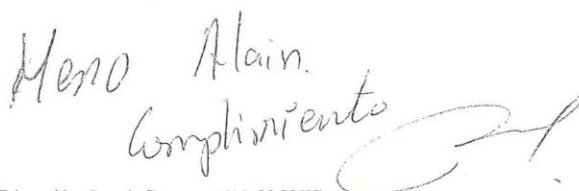 Memo Alain.
Cumplimiento